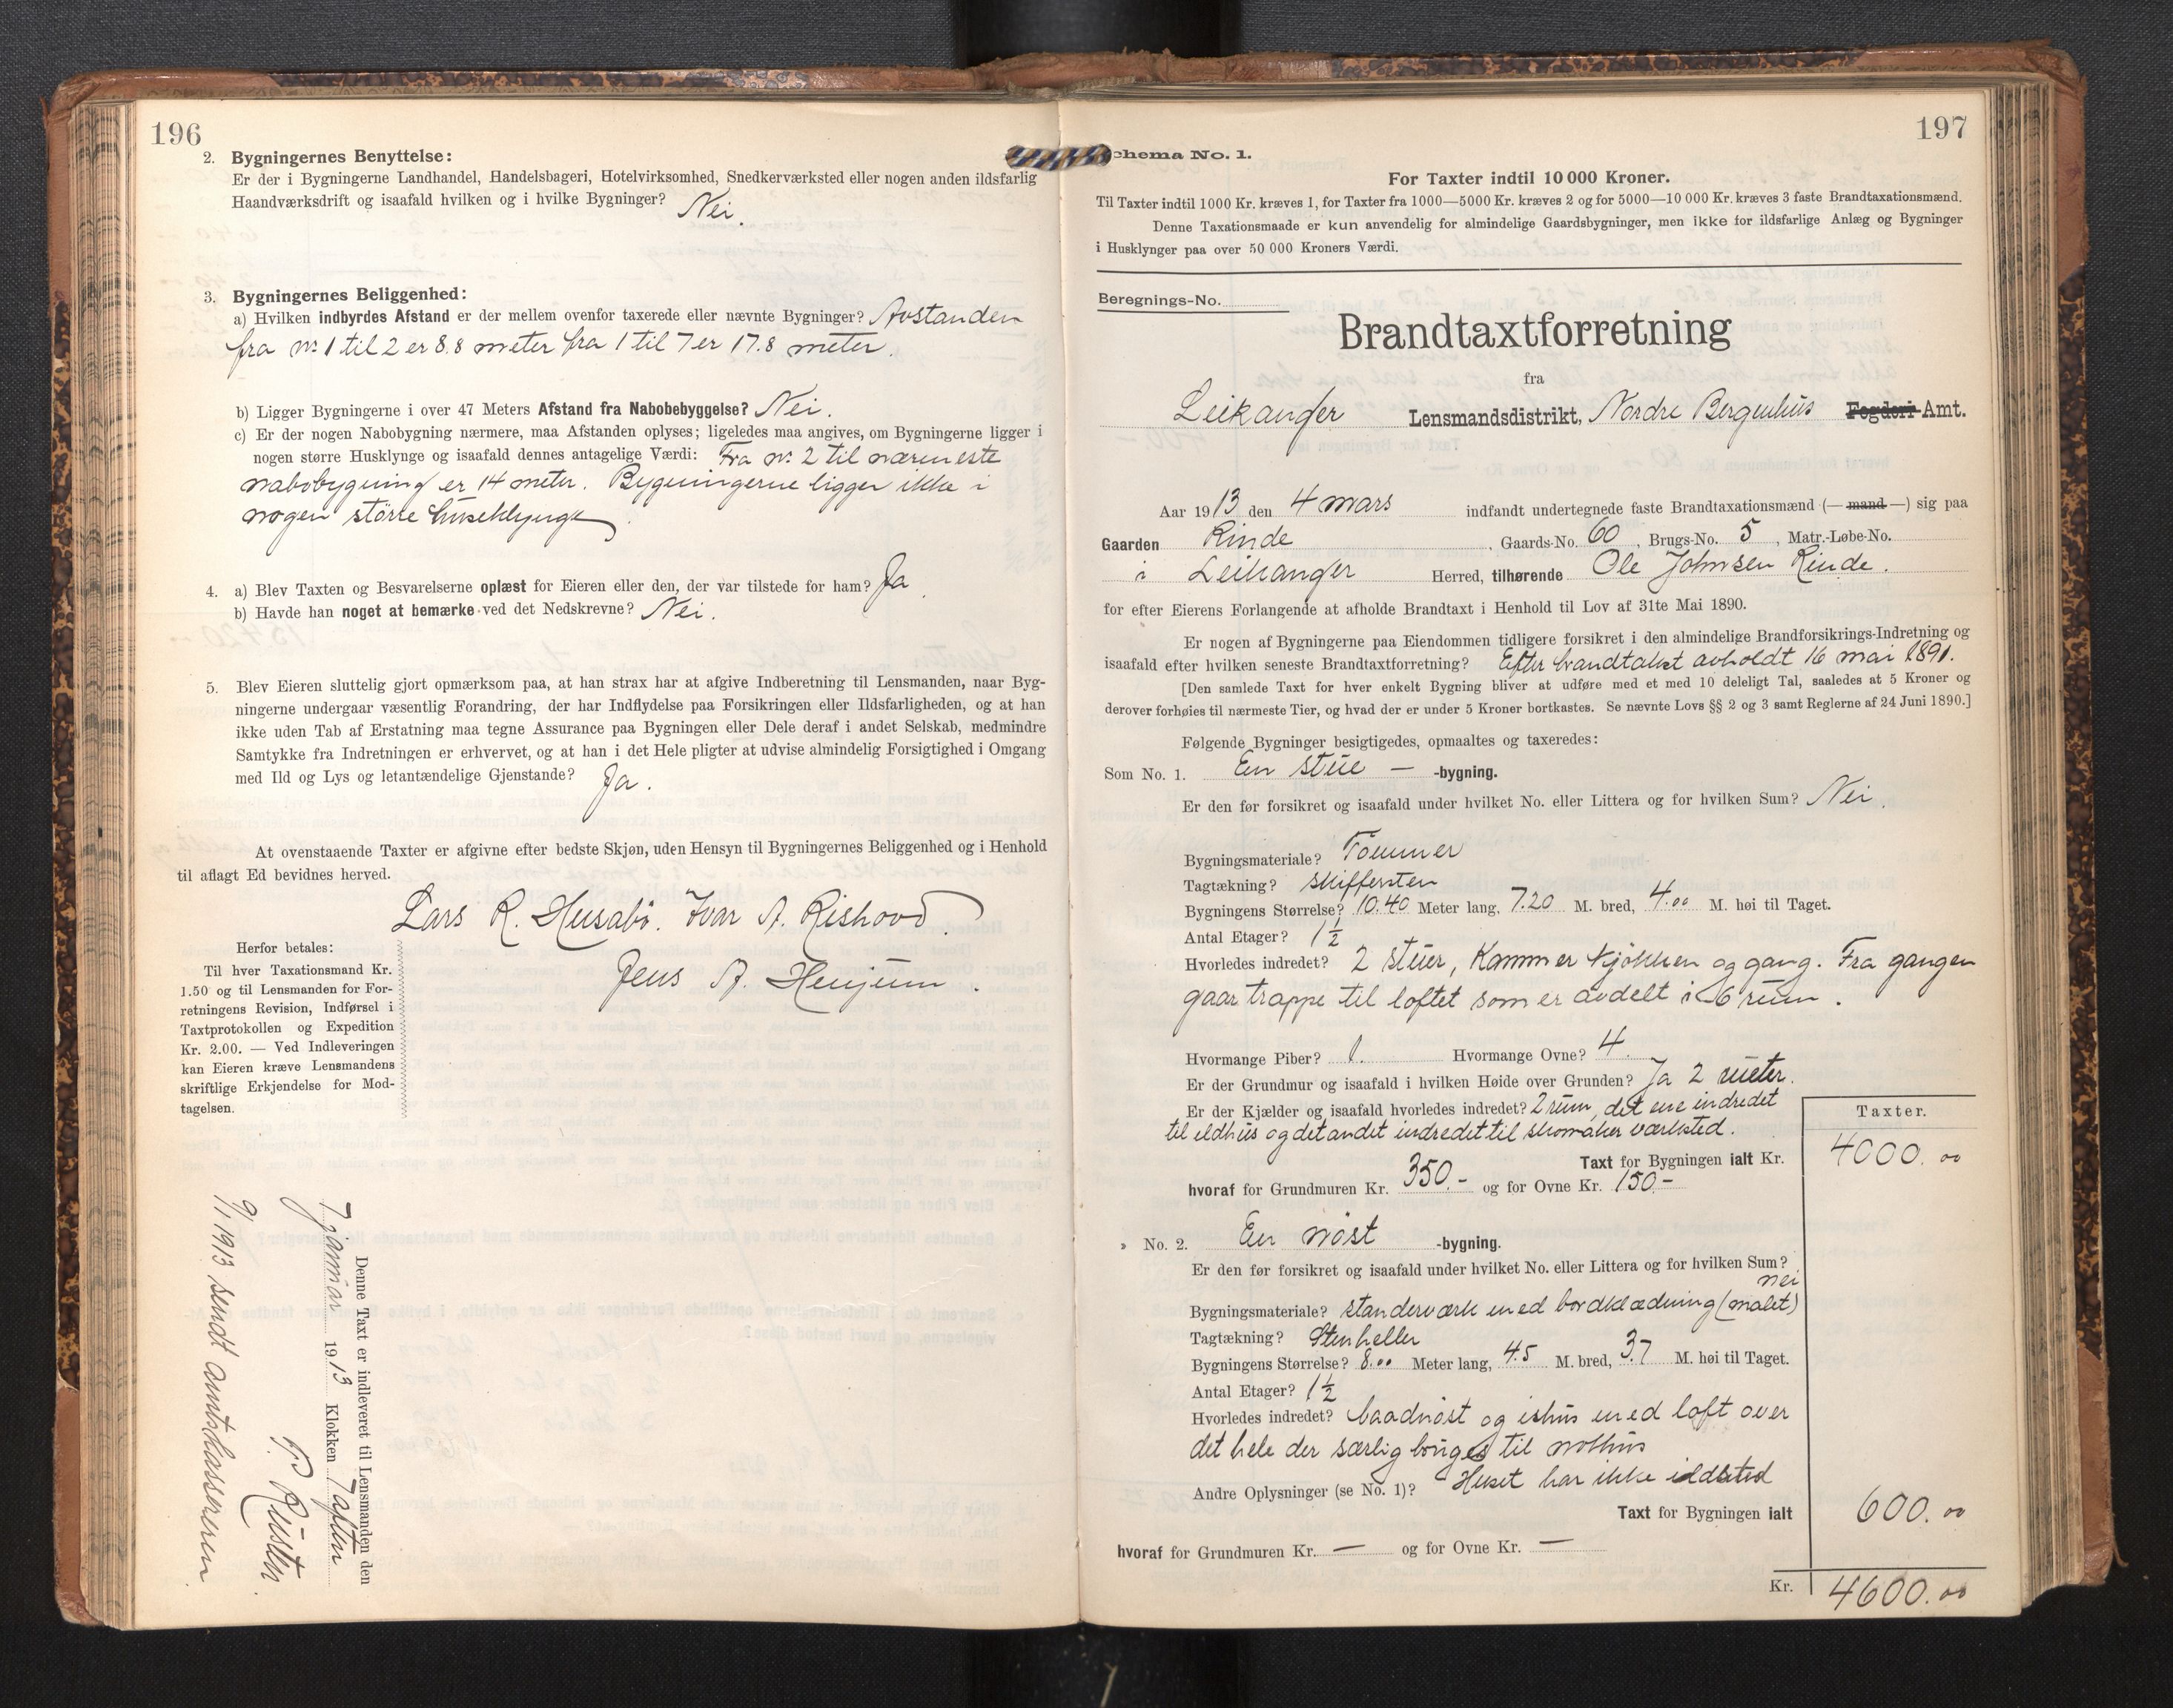 196
2. Bygningernes Benyttelse:
Er der i Bygningerne Landhandel, Handelsbageri, Hotelvirksomhed, Snedkerværksted eller nogen anden ildsfarlig
Haandværksdrift og isaafald hvilken og i hvilke Bygninger? Nei.
3. Bygningernes Beliggenhed:
a) Hvilken indbyrdes Afstand er der mellem ovenfor taxerede eller nævnte Bygninger? Avstanden
fra nr. 1 til 2 er 8.8 meter fra 1 til 7 er 17.8 meter.
b) Ligger Bygningerne i over 47 Meters Afstand fra Nabobebyggelse? Nei.
c) Er der nogen Nabobygning nærmere, maa Afstanden oplyses; ligeledes maa angives, om Bygningerne ligger i
nogen større Husklynge og isaafald dennes antagelige Værdi: Fra nr. 2 til nærmeste
nabobygning er 14 meter. Bygningerne ligger ikke i
nogen större huseklynge
4. a) Blev Taxten og Besvarelserne oplæst for Eieren eller den, der var tilstede for ham? Ja
b) Havde han noget at bemærke ved det Nedskrevne? Nei.
5. Blev Eieren sluttelig gjort opmærksom paa, at han strax har at afgive Indberetning til Lensmanden, naar Byg-
ningerne undergaar væsentlig Forandring, der har Indflydelse paa Forsikringen eller Ildsfarligheden, og at han
ikke uden Tab af Erstatning maa tegne Assurance paa Bygningen eller Dele deraf i andet Selskab, medmindre
Samtykke fra Indretningen er erhvervet, og at han i det Hele pligter at udvise almindelig Forsigtighed i Omgang
med Ild og Lys og letantændelige Gjenstande? Ja.
At ovenstaaende Taxter er afgivne efter bedste Skjøn, uden Hensyn til Bygningernes Beliggenhed og i Henhold
til aflagt Ed bevidnes herved.
Lars R. Husabö. Ivar A. Rishovd.
Jens A. Henjum.
Herfor betales:
Til hver Taxationsmand Kr.
1.50 og til Lensmanden for For-
retningens Revision, Indførsel i
Taxtprotokollen og Expedition
Kr. 2.00. — Ved Indleveringen
kan Eieren kræve Lensmandens
skriftlige Erkjendelse for Mod-
tagelsen.
Denne Taxt er indleveret til Lensmanden den
7 januar 1913 Klokken 7 aften
9/1 1913 sendt amtskassereren
197
Schema No. 1.
For Taxter indtil 10 000 Kroner.
Til Taxter indtil 1000 Kr. kræves 1, for Taxter fra 1000—5000 Kr. kræves 2 og for 5000—10 000 Kr. kræves 3 faste Brandtaxationsmænd.
Denne Taxationsmaade er kun anvendelig for almindelige Gaardsbygninger, men ikke for ildsfarlige Anlæg og Bygninger
i Husklynger paa over 50 000 Kroners Værdi.
Beregnings-No.
Brandtaxtforretning
fra
Leikanger Lensmandsdistrikt, Nordre Bergenhus Fogderi-Amt.
Aar 1913 den 4 mars indfandt undertegnede faste Brandtaxationsmænd (— mand —) sig paa
Gaarden Rinde, Gaards-No. 60, Brugs-No. 5, Matr.-Løbe-No.
i Leikanger Herred, tilhørende Ole Johnsen Rinde.
for efter Eierens Forlangende at afholde Brandtaxt i Henhold til Lov af 31te Mai 1890.
Er nogen af Bygningerne paa Eiendommen tidligere forsikret i den almindelige Brandforsikrings-Indretning og
isaafald efter hvilken seneste Brandtaxtforretning? Efter brandtakst avholdt 16 mai 1891.
[Den samlede Taxt for hver enkelt Bygning bliver at udføre med et med 10 deleligt Tal, saaledes at 5 Kroner og
derover forhøies til nærmeste Tier, og hvad der er under 5 Kroner bortkastes. Se nævnte Lovs §§ 2 og 3 samt Reglerne af 24 Juni 1890.]
Følgende Bygninger besigtigedes, opmaaltes og taxeredes:
Som No. 1. En stue — -bygning.
Er den før forsikret og isaafald under hvilket No. eller Littera og for hvilken Sum? Nei.
Bygningsmateriale? Tömmer
Tagtækning? Skiffersten
Bygningens Størrelse? 10.40 Meter lang, 7.20 M. bred, 4.00 M. høi til Taget.
Antal Etager? 1 1/2
Hvorledes indredet? 2 stuer, Kammer kjökken og gang. Fra gangen
gaar trappe til loftet som er avdelt i 6 rum.
Hvormange Piber? 1. Hvormange Ovne? 4.
Er der Grundmur og isaafald i hvilken Høide over Grunden? Ja 2 meter.
Er der Kjælder og isaafald hvorledes indredet? 2 rum, det ene indredet
til ildhus og det andet indredet til skomaker værksted.
Taxter.
Taxt for Bygningen ialt Kr. 4000.00
hvoraf for Grundmuren Kr. 350.- og for Ovne Kr. 150.-
» No. 2. En nöst -bygning.
Er den før forsikret og isaafald under hvilket No. eller Littera og for hvilken Sum?
nei
Bygningsmateriale? standerværk med bordklædning (malet)
Tagtækning? Stenheller
Bygningens Størrelse? 8.00 Meter lang, 4.5 M. bred, 3.7 M. høi til Taget.
Antal Etager? 1 1/2
Hvorledes indredet? baadnöst og ishus med loft over
det hele der særlig bruges til nothus
Andre Oplysninger (se No. 1)? Huset har ikke ildsted
Taxt for Bygningen ialt 600.00
hvoraf for Grundmuren Kr. — og for Ovne Kr. —
Kr. 4600.00